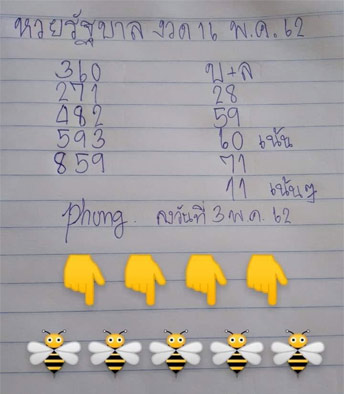 หวยรัฐบาล งวด 16 พ.ค. 62
360 บ+ล
271 28
482 59
593 60 เน้น
859 71
11 เน้นๆ
Phung. ลงวันที่ 3 พ.ค. 62